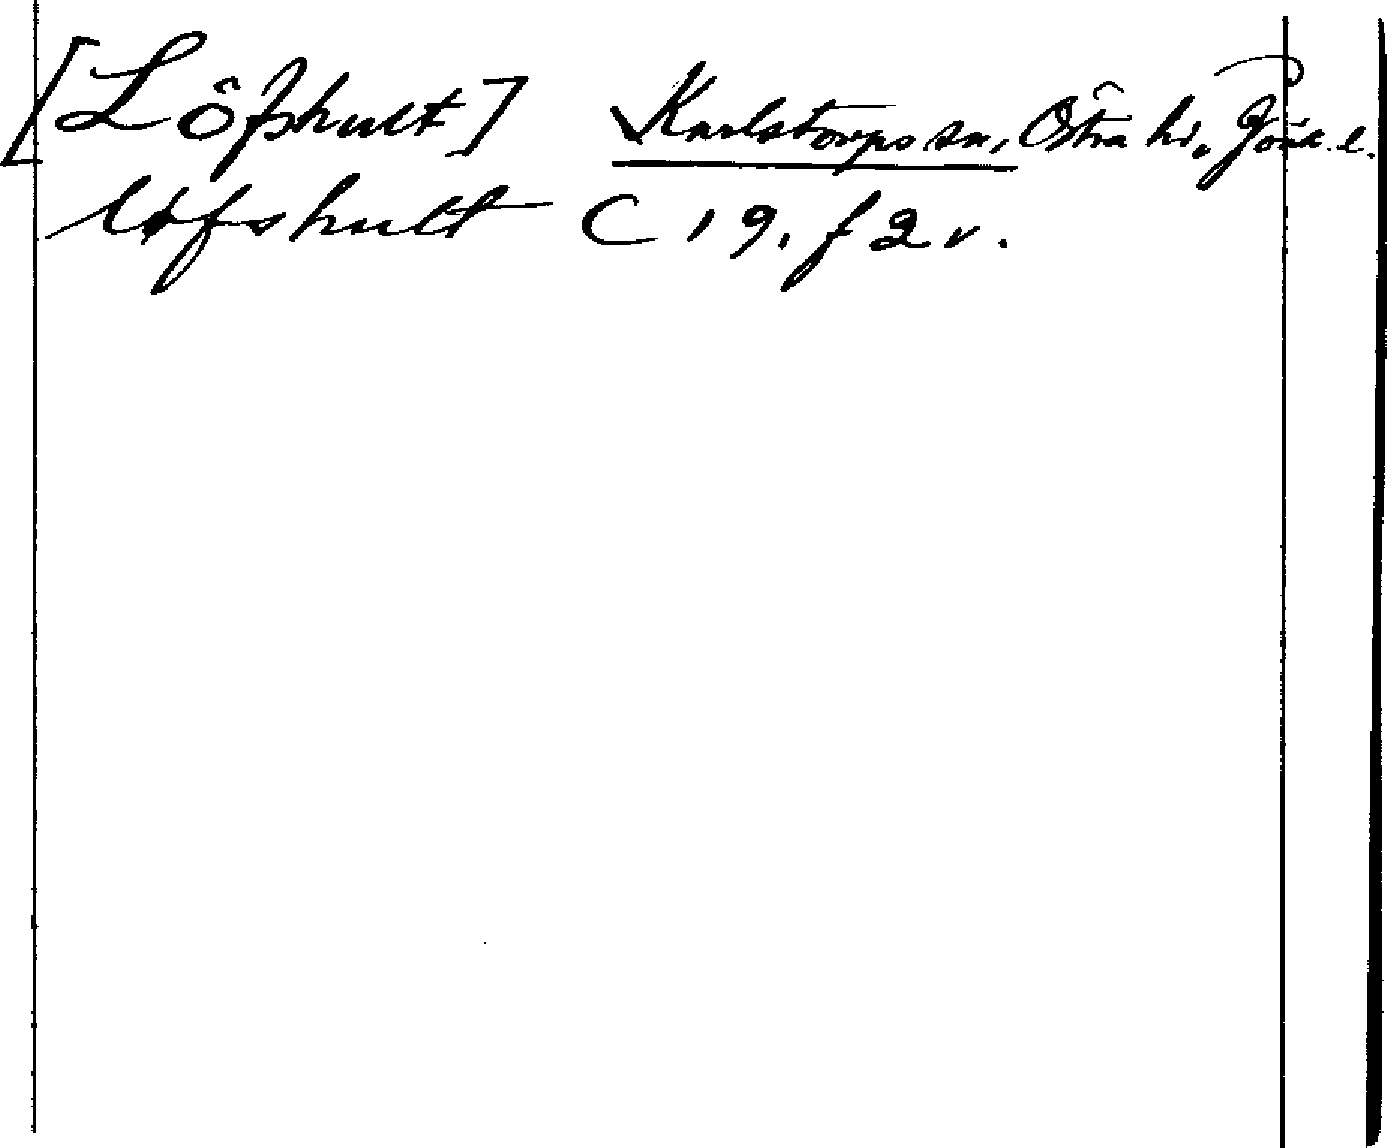 [Löfshult] Karlstorps sn, Östra hd, Jönk. l.
løfshult C 19. f 2 v.